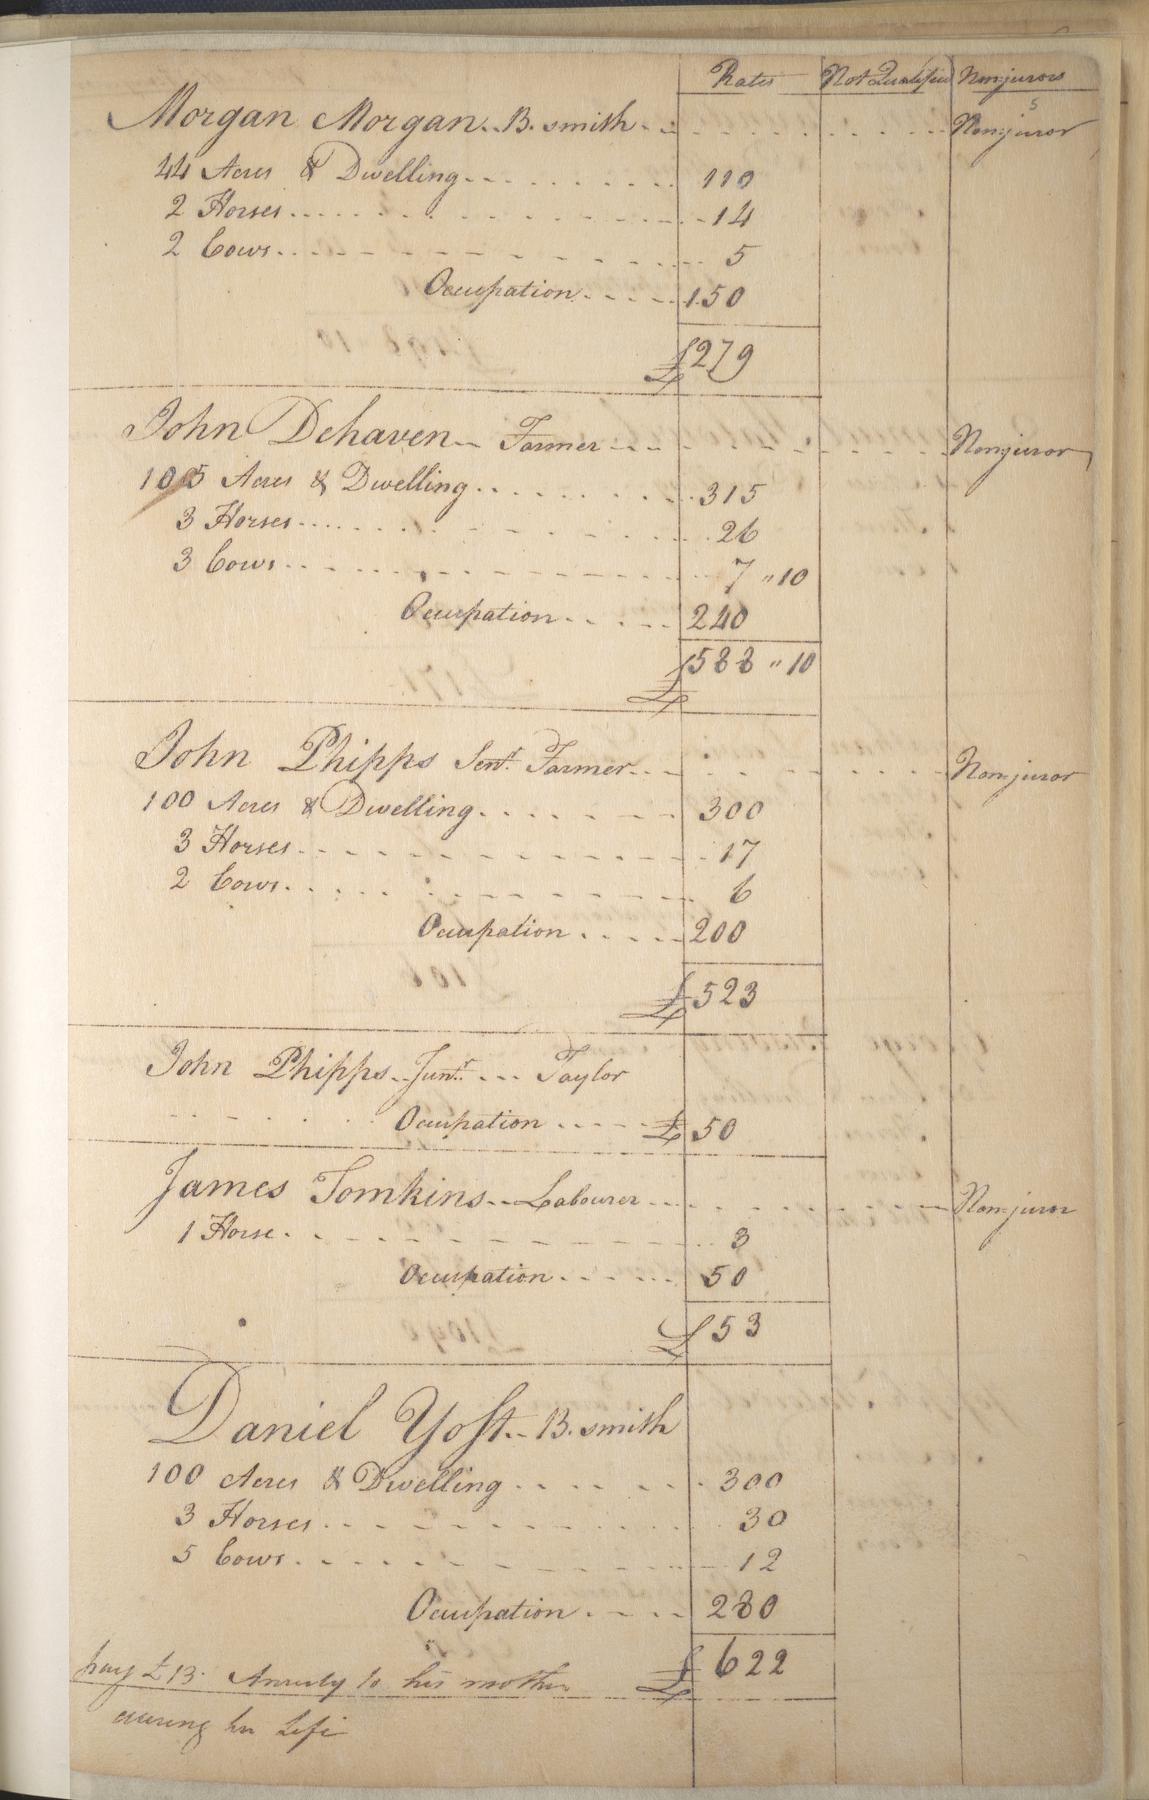 Rates Not Qualified Nonjurors
5
Morgan Morgan B. smith Nonjuror
44 Acres & Dwelling 110
2 Horses 14
2 Cows 5
Occupation 150
£ 279
John Dehaven Farmer Nonjuror
105 Acres & Dwelling 315
3 Horses 26
3 Cows 7 " 10
Occupation 240
£ 588 " 10
John Phipps Senr. Farmer Nonjuror
100 Acres & Dwelling 300
3 Horses 17
2 Cows 6
Occupation 200
£ 523
John Phipps Junr. Taylor
Occupation £ 50
James Tomkins Labourer Nonjuror
1 Horse 3
Occupation 50
£ 53
Daniel Yost B. smith
100 Acres & Dwelling 300
3 Horses 30
5 Cows 12
Occupation 280
£ 622
pay £13 Annuity to his mother
during her Life